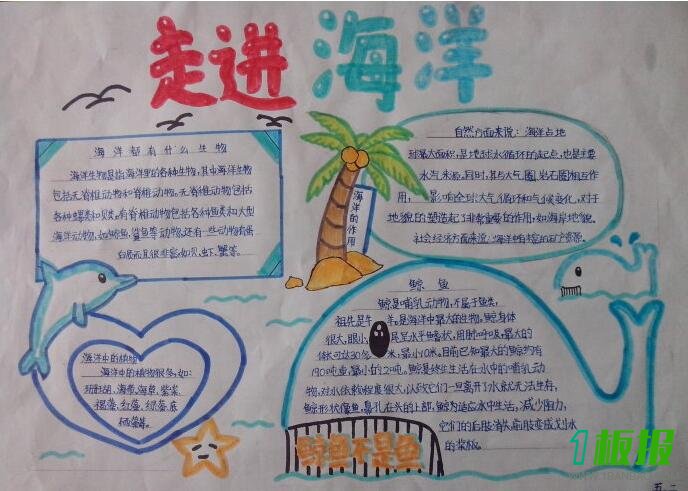 走进海洋
海洋都有什么生物
海洋生物是指海洋里的各种生物，其中海洋生物
包括无脊椎动物和脊椎动物。无脊椎动物包括
各种螺类和贝类。有脊椎动物包括各种鱼类和大型
海洋动物，如鲸鱼，鲨鱼等动物，还有一些动物有蛋
白质而且很非富，如贝、虾、蟹等。
海洋的作用
自然方面来说：海洋占地
球最大面积，是地球水循环的起点，也是主要
水气来源，同时，其与大气圈、岩石圈相互作
用，影响全球大气循环和气候变化，对于
地貌的塑造起了非常重要的作用，如海岸地貌。
社会经济方面来说：海洋中有丰富的矿产资源。
海洋中的植物
海洋中的植物很多，如：
海带、海草、紫菜、
褐藻、红藻、绿藻、
鲸鱼
鲸鱼是哺乳动物，不属于鱼类，
祖先是牛羊，是海洋中最大的生物。鲸身体
很大，眼小，尾呈水平鳍状，用肺呼吸，最大的
体长可达30多米，最小10米。目前已知最大的鲸约有
190吨重，最小的2吨。鲸是终生生活在水中的哺乳动
物，对水依赖程度很大，以致它们一旦离开了水就无法生存，
鲸形状像鱼，鼻孔在头的上部，鲸为适应水中生活，减少阻力，
它们的后肢消失，前肢变成划水
的桨板。
鲸鱼不是鱼
1板报
五 二